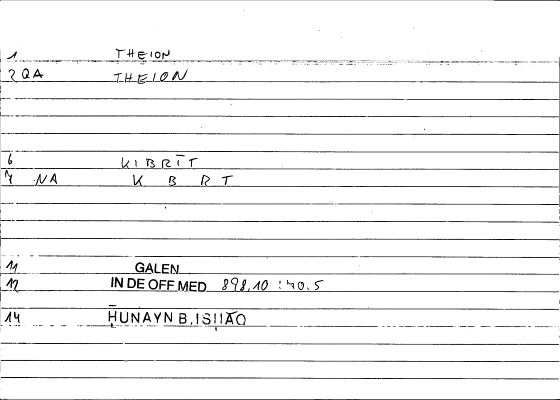 1 THEION
2 QA THEION
6 KIBRĪT
7 NA K B R T
11 GALEN
12 IN DE OFF MED 898,10 : 40.5
14 ḤUNAYN B. ISḤĀQ